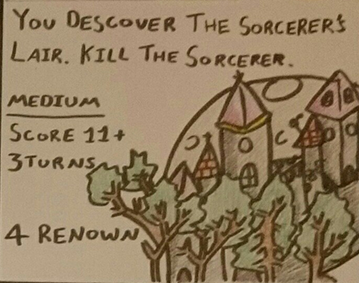 You Descover The Sorcerer's
Lair. Kill The Sorcerer.
Medium
Score 11+
3 Turns
4 Renown